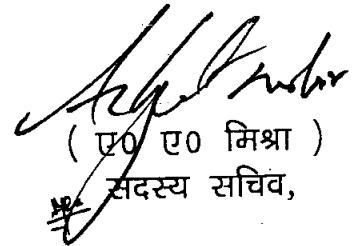 ( ए0 ए0 मिश्रा )
सदस्य सचिव,